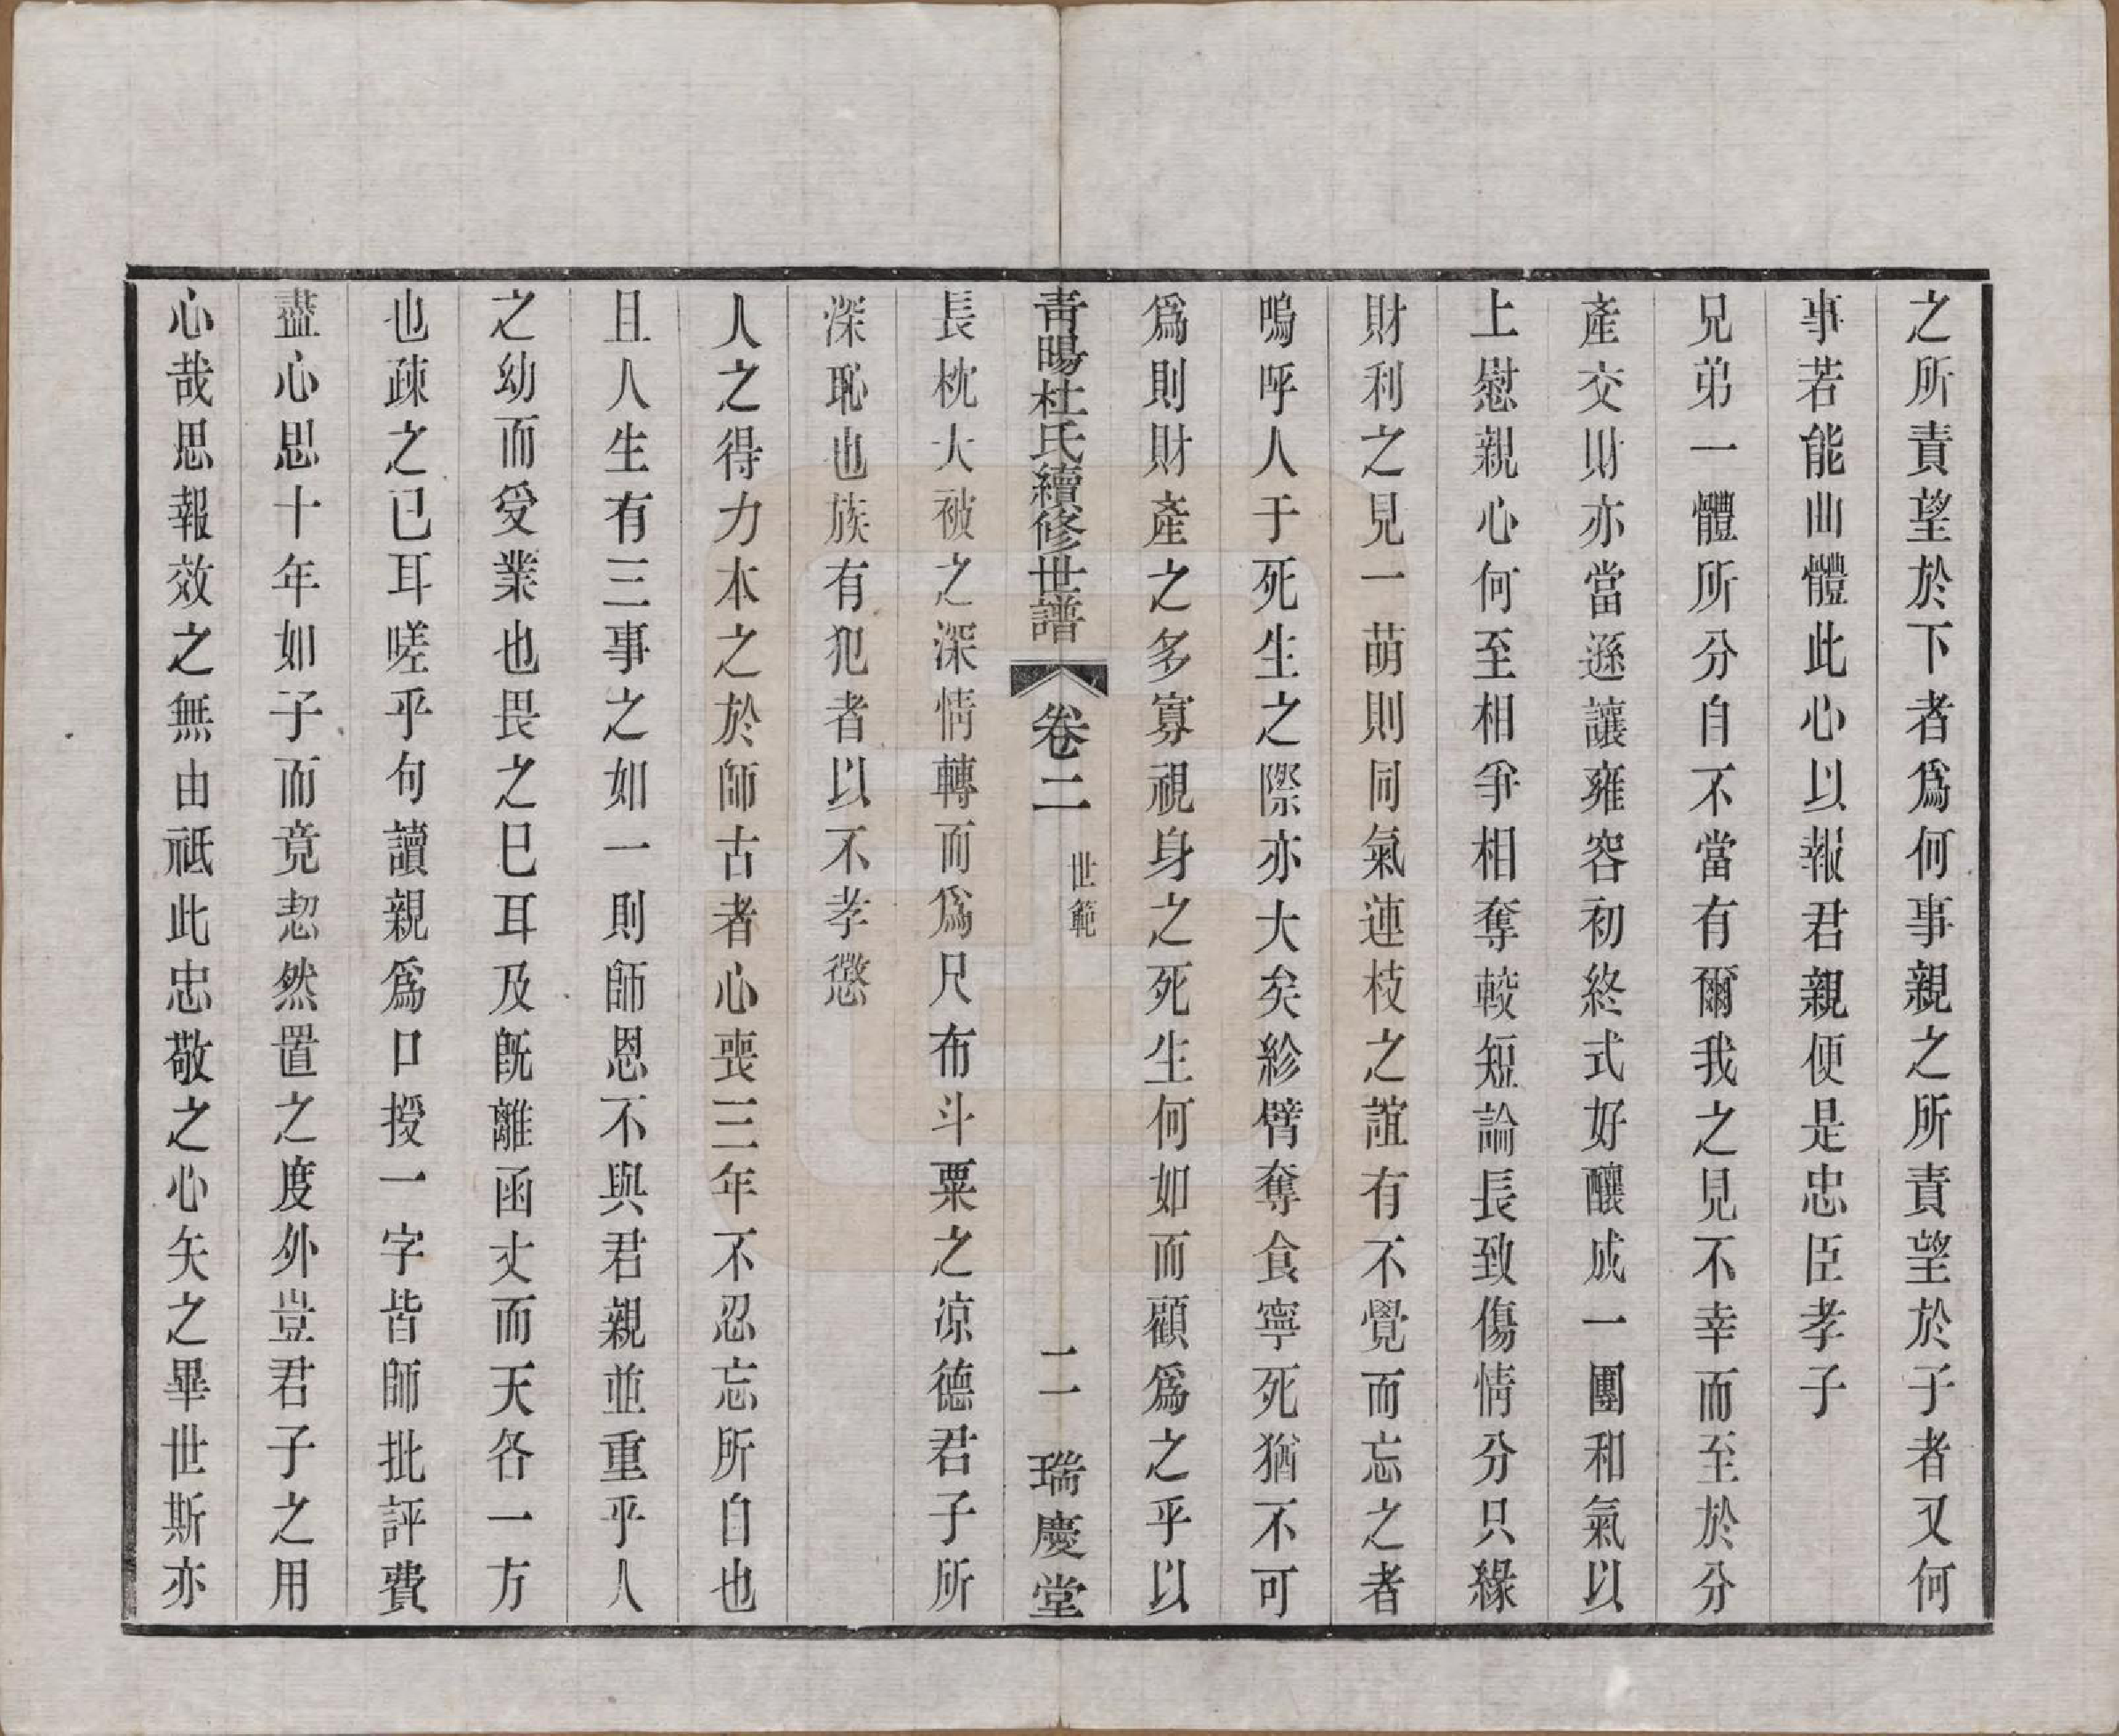 之所責望於下者爲何事親之所責望於子者又何
事若能曲體此心以報君親便是忠臣孝子
兄弟一體所分自不當有爾我之見不幸而至於分
產交財亦當遜讓雍容初終式好釀成一團和氣以
上慰親心何至相爭相奪較短論長致傷情分只緣
財利之見一萌則同氣連枝之誼有不覺而忘之者
嗚呼人于死生之際亦大矣紾臂奪食寧死猶不可
爲則財產之多寡視身之死生何如而顧爲之乎以
青暘杜氏續修世譜 卷二 世範 二 瑞慶堂
長枕大被之深情轉而爲尺布斗粟之凉德君子所
深恥也族有犯者以不孝懲
人之得力本之於師古者心喪三年不忍忘所自也
且人生有三事之如一則師恩不與君親並重乎人
之幼而受業也畏之巳耳及旣離函丈而天各一方
也疎之已耳嗟乎句讀親爲口授一字皆師批評費
盡心思十年如子而竟恝然置之度外豈君子之用
心哉思報效之無由祗此忠敬之心矢之畢世斯亦